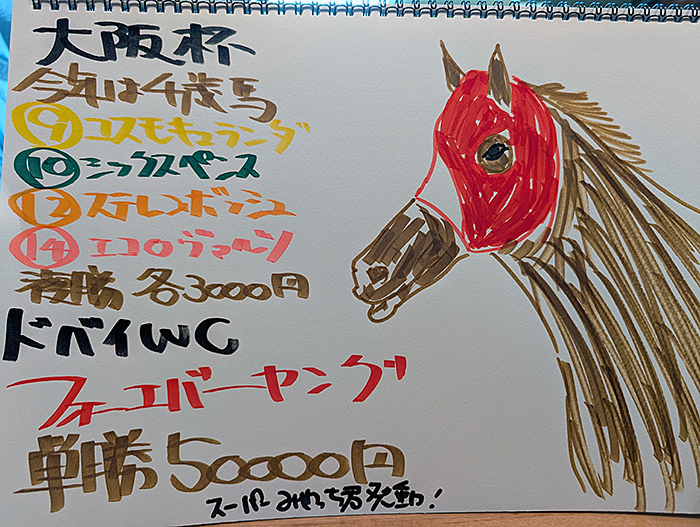 大阪杯
今年は4歳馬
⑨コスモキュランダ
⑩シックスペンス
⑫ステレンボッシュ
⑭エコロヴァルツ
複勝 各3000円
ドバイWC
フォーエバーヤング
単勝50000円
スーパーみやっち男発動!